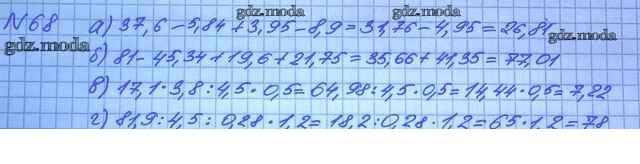 №68 а) 37,6 - 5,84 + 3,95 - 8,9 = 31,76 - 4,95 = 26,81
б) 81 - 45,34 + 19,6 + 21,75 = 35,66 + 41,35 = 77,01
в) 17,1 · 3,8 : 4,5 · 0,5 = 64,98 : 4,5 · 0,5 = 14,44 · 0,5 = 7,22
г) 81,9 : 4,5 : 0,28 · 1,2 = 18,2 : 0,28 · 1,2 = 65 · 1,2 = 78
gdz.moda
gdz.moda
gdz.moda
gdz.moda
gdz.moda
gdz.moda